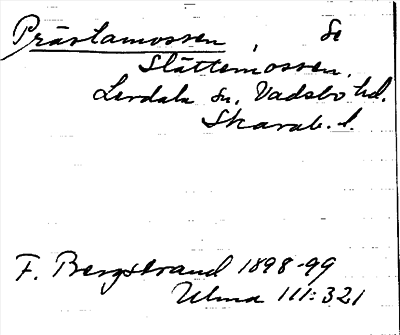 Prästamossen, Se
Slättemossen.
Lerdala sn, Vadsbo hd.
Skarab. l.
F. Bergstrand 1898-99
Ulma 111:321